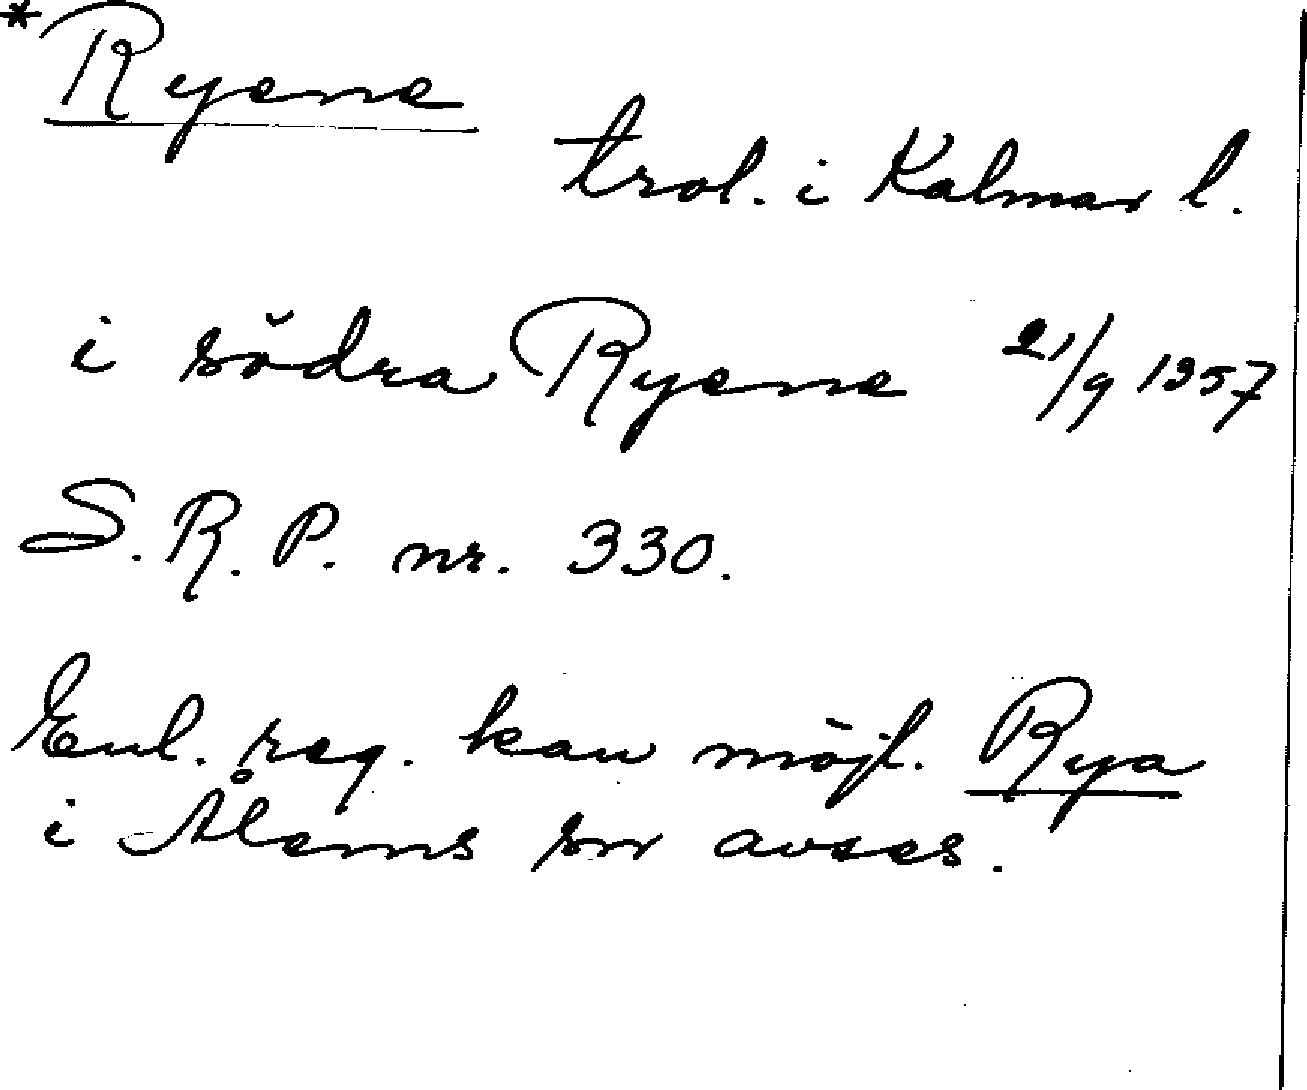 *Ryene
trol. i Kalmar l.
i södra Ryene 21/9 1357
S. R. P. nr. 330.
Enl. reg. kan möjl. Rya
i Ålems sn avses.